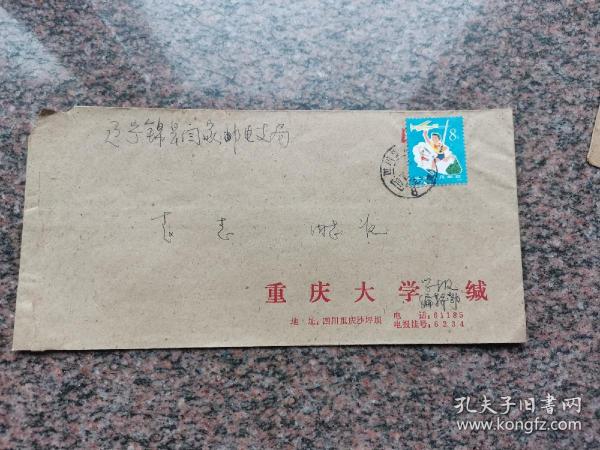 辽宁锦县闫家邮电支局
8
袁 志 同志 收
重庆大学 缄
学报
编辑部
地 址:四川重庆沙坪坝
电 话:61185
电报挂号:6234
孔夫子旧书网
www.kongfz.com